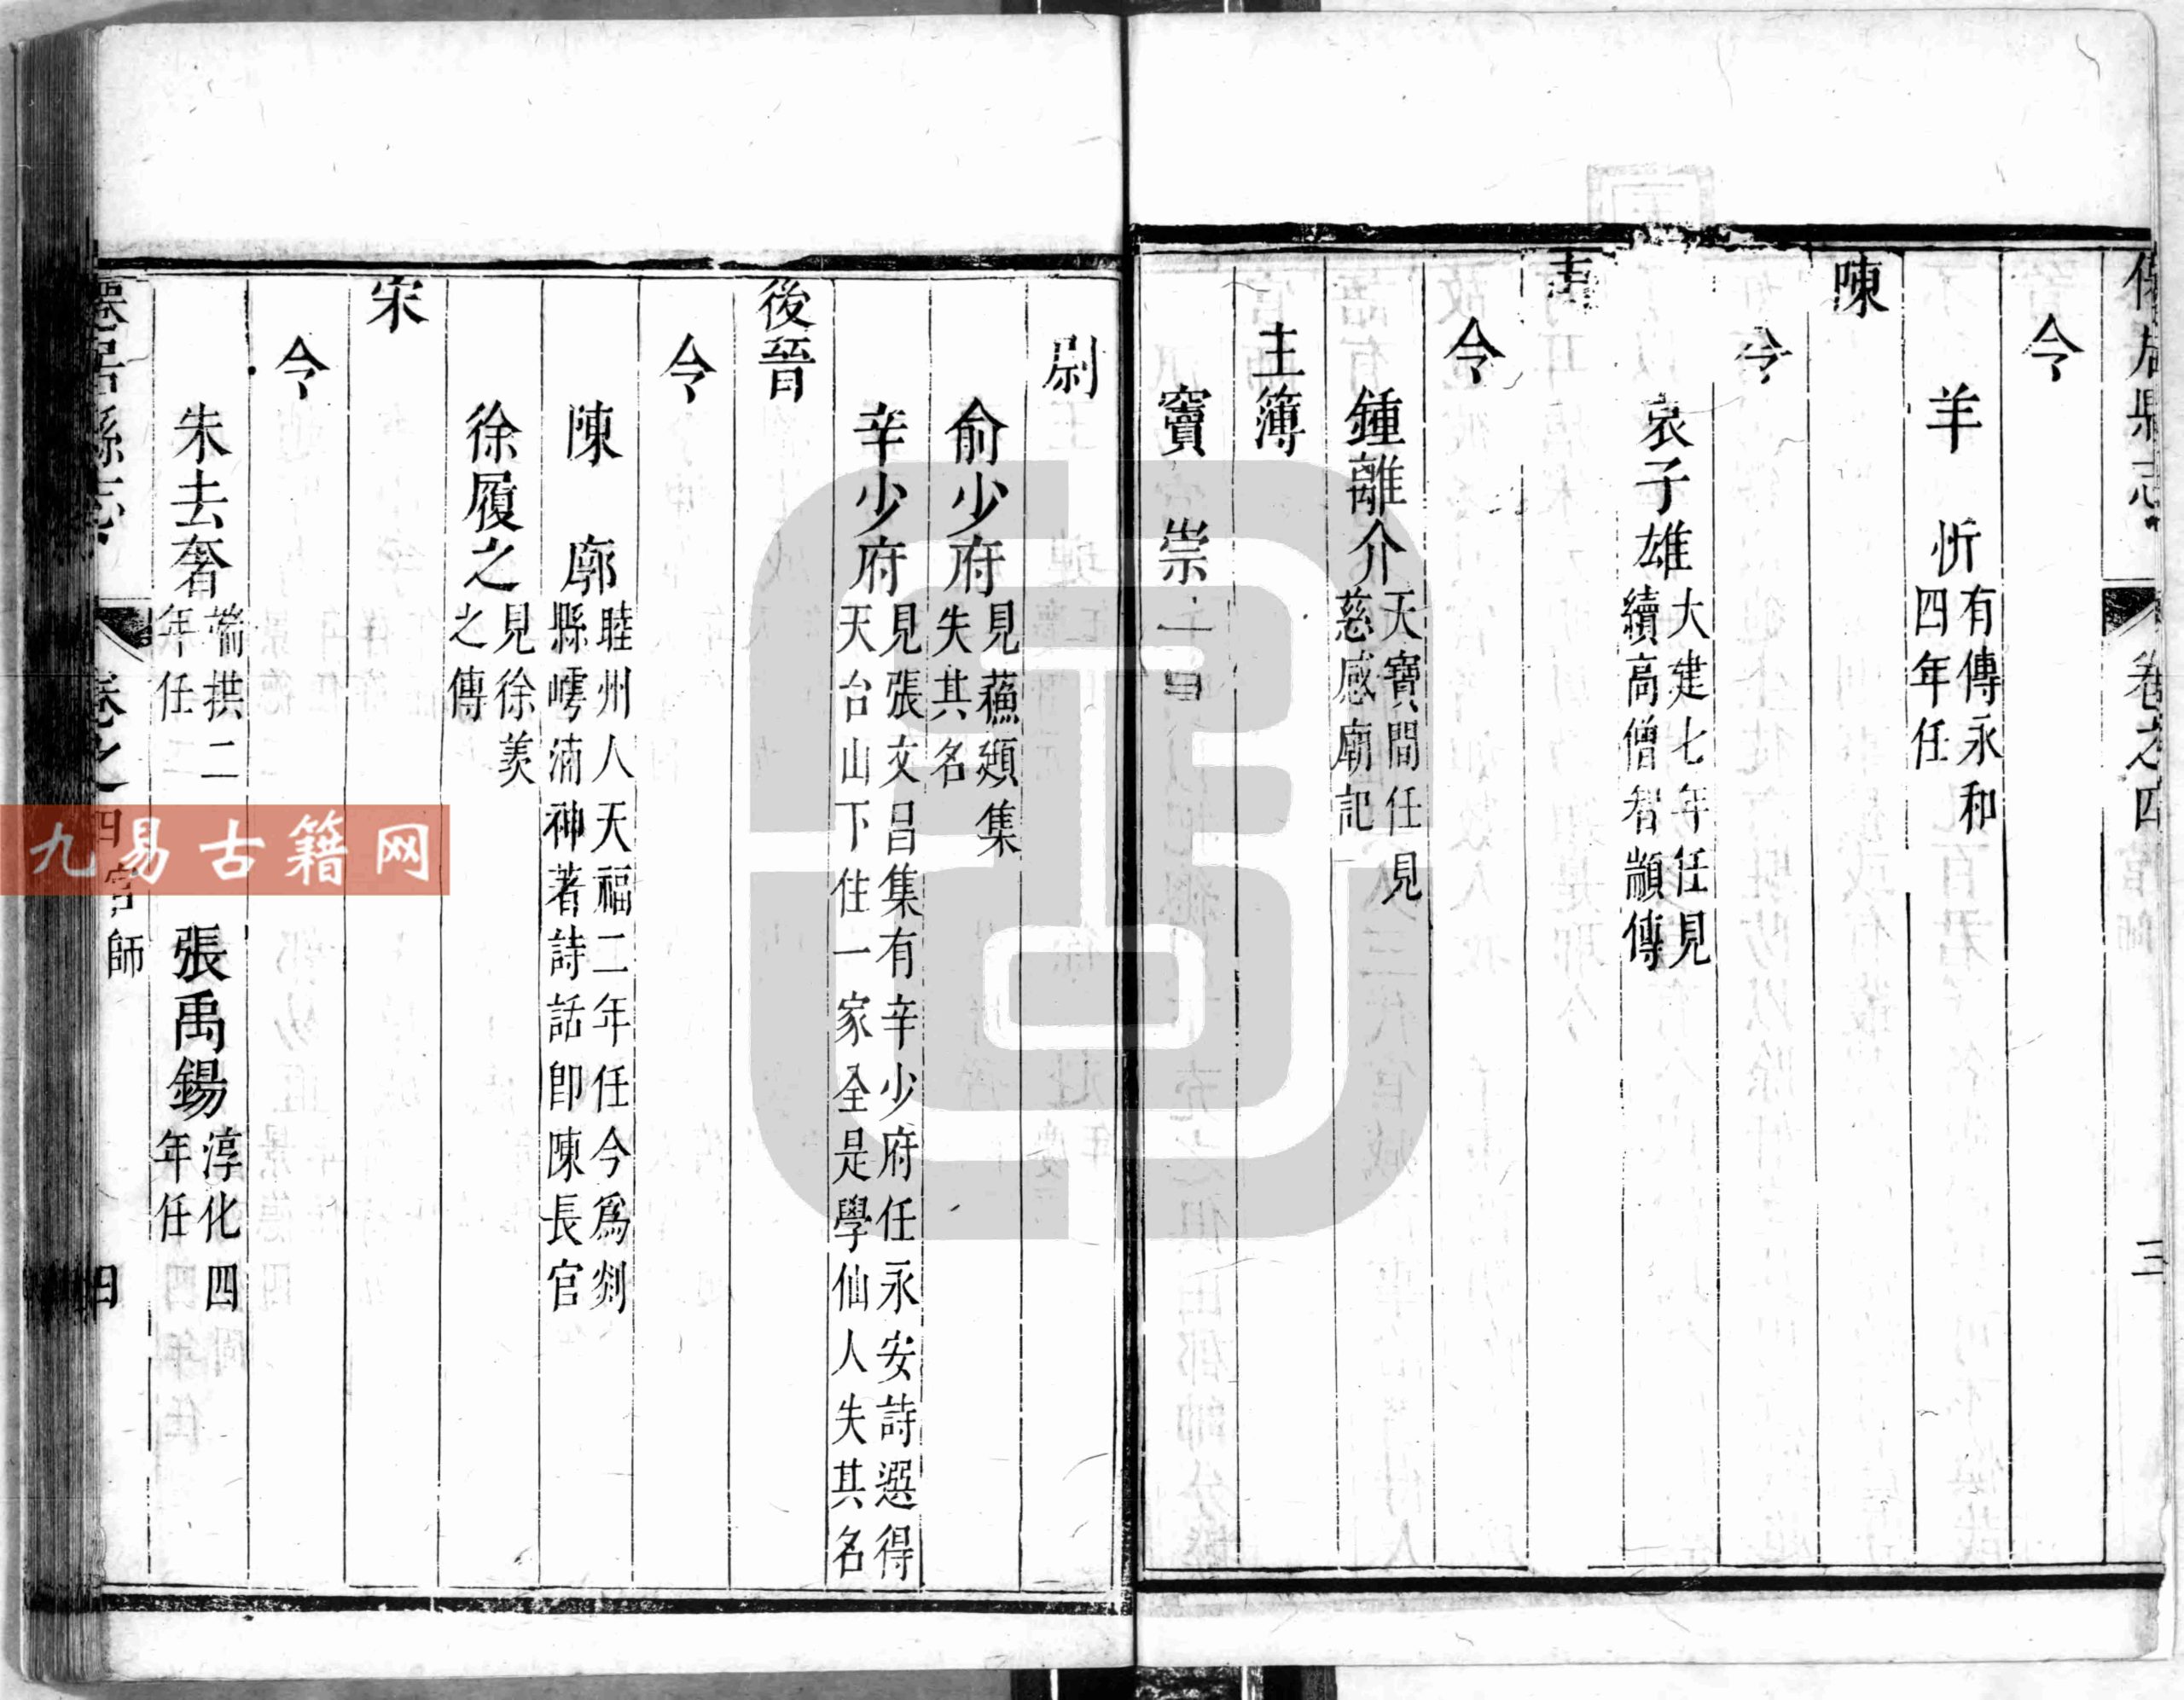 僊居縣志 卷之四 官師 三
令
羊 忻 有傳永和四年任
陳
令
袁子雄 大建七年任見續高僧智顓傳
令
鍾離介 天寶間任見慈感廟記
主簿
竇 崇
尉
俞少府 見蘓頲集失其名
辛少府 見張文昌集有辛少府任永安詩選得天台山下住一家全是學仙人失其名
後晉
令
陳 廓 睦州人天福二年任今爲剡縣㟧浦神著詩話卽陳長官
徐履之 見徐羡之傳
宋
令
朱去奢 端拱二年任 張禹錫 淳化四年任
僊居縣志 卷之四 官師 四
九易古籍网